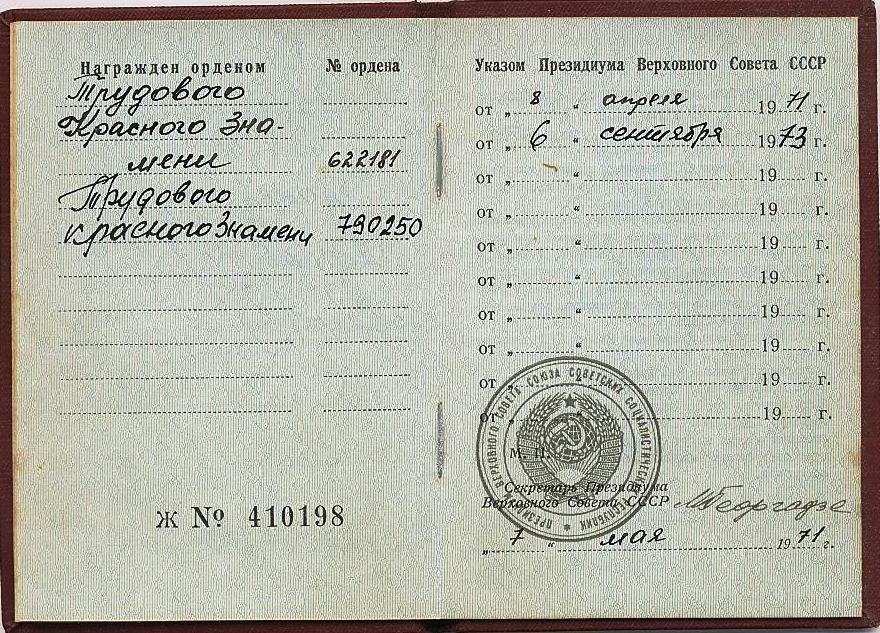 Награжден орденом № ордена
Трудового
Красного Зна-
мени 622181
Трудового
красного Знамени 790250
Ж № 410198
Указом Президиума Верховного Совета СССР
от „ 8 “ апреля 1971 г.
от „ 6 “ сентября 1973 г.
от „ “ 19 г.
от „ “ 19 г.
от „ “ 19 г.
от „ “ 19 г.
от „ “ 19 г.
от „ “ 19 г.
от „ “ 19 г.
от „ “ 19 г.
ПРЕЗИДИУМ ВЕРХОВНОГО СОВЕТА СОЮЗА СОВЕТСКИХ СОЦИАЛИСТИЧЕСКИХ РЕСПУБЛИК
М. П.
Секретарь Президиума
Верховного Совета СССР МГеоргадзе
„ 7 “ мая 1971 г.